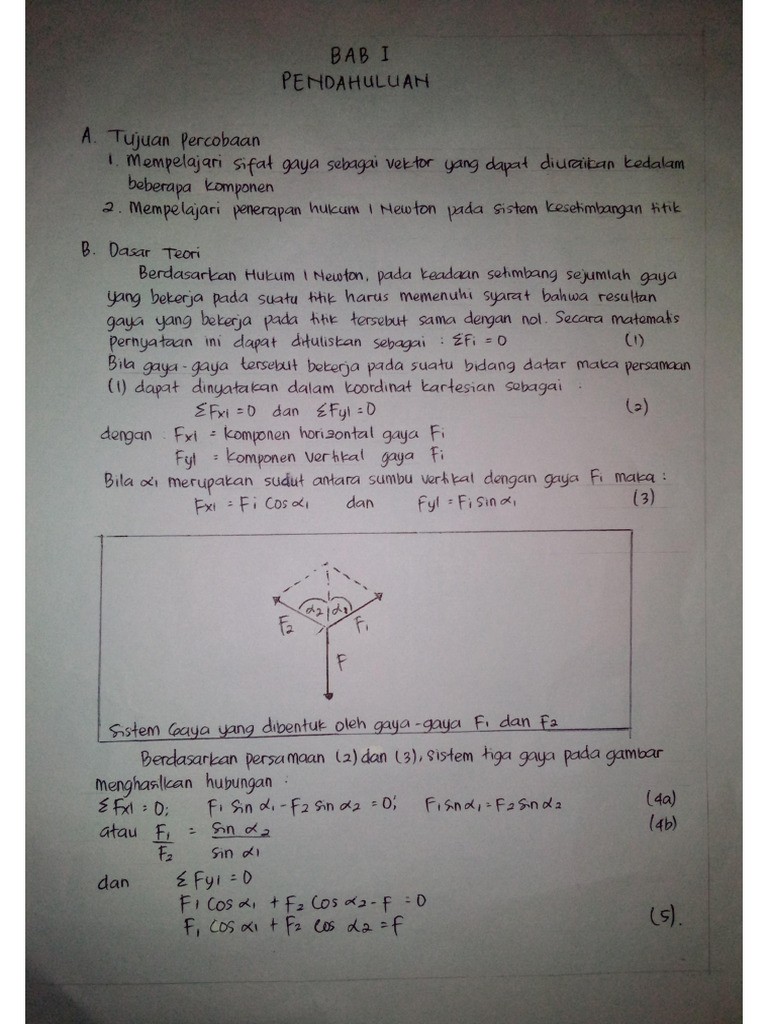 BAB I
PENDAHULUAN
A. Tujuan Percobaan
1. Mempelajari sifat gaya sebagai vektor yang dapat diuraikan kedalam
beberapa komponen
2. Mempelajari penerapan hukum 1 Newton pada sistem kesetimbangan titik
B. Dasar Teori
Berdasarkan Hukum 1 Newton, pada keadaan setimbang sejumlah gaya
yang bekerja pada suatu titik harus memenuhi syarat bahwa resultan
gaya yang bekerja pada titik tersebut sama dengan nol. Secara matematis
pernyataan ini dapat dituliskan sebagai : ΣFi = 0 (1)
Bila gaya-gaya tersebut bekerja pada suatu bidang datar maka persamaan
(1) dapat dinyatakan dalam koordinat kartesian sebagai :
ΣFxi = 0 dan ΣFyi = 0 (2)
dengan : Fxi = komponen horizontal gaya Fi
Fyi = komponen vertikal gaya Fi
Bila α1 merupakan sudut antara sumbu vertikal dengan gaya F1 maka :
Fxi = Fi Cos α1 dan Fyi = Fi Sin α1 (3)
α2 α1
F2 F1
F
Sistem Gaya yang dibentuk oleh gaya-gaya F1 dan F2
Berdasarkan persamaan (2) dan (3), sistem tiga gaya pada gambar
menghasilkan hubungan :
ΣFxi = 0; F1 Sin α1 - F2 Sin α2 = 0; F1 Sin α1 = F2 Sin α2 (4a)
atau F1/F2 = Sin α2/Sin α1 (4b)
dan ΣFyi = 0
F1 Cos α1 + F2 Cos α2 - F = 0
F1 Cos α1 + F2 Cos α2 = F (5).